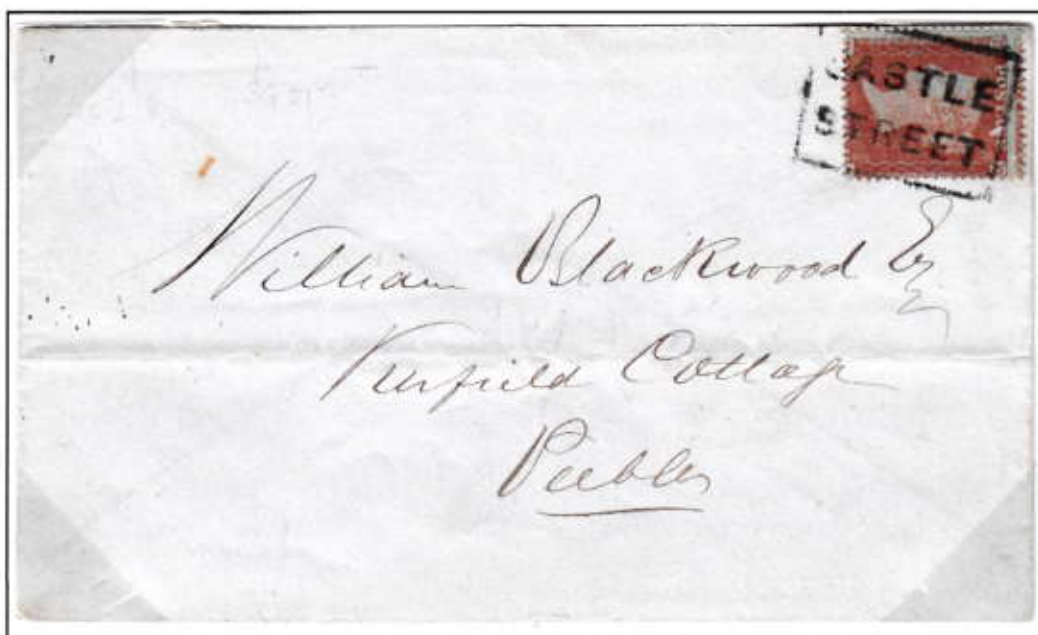 CASTLE
STREET
William Blackwood Esq
Kerfield Cottage
Peebles